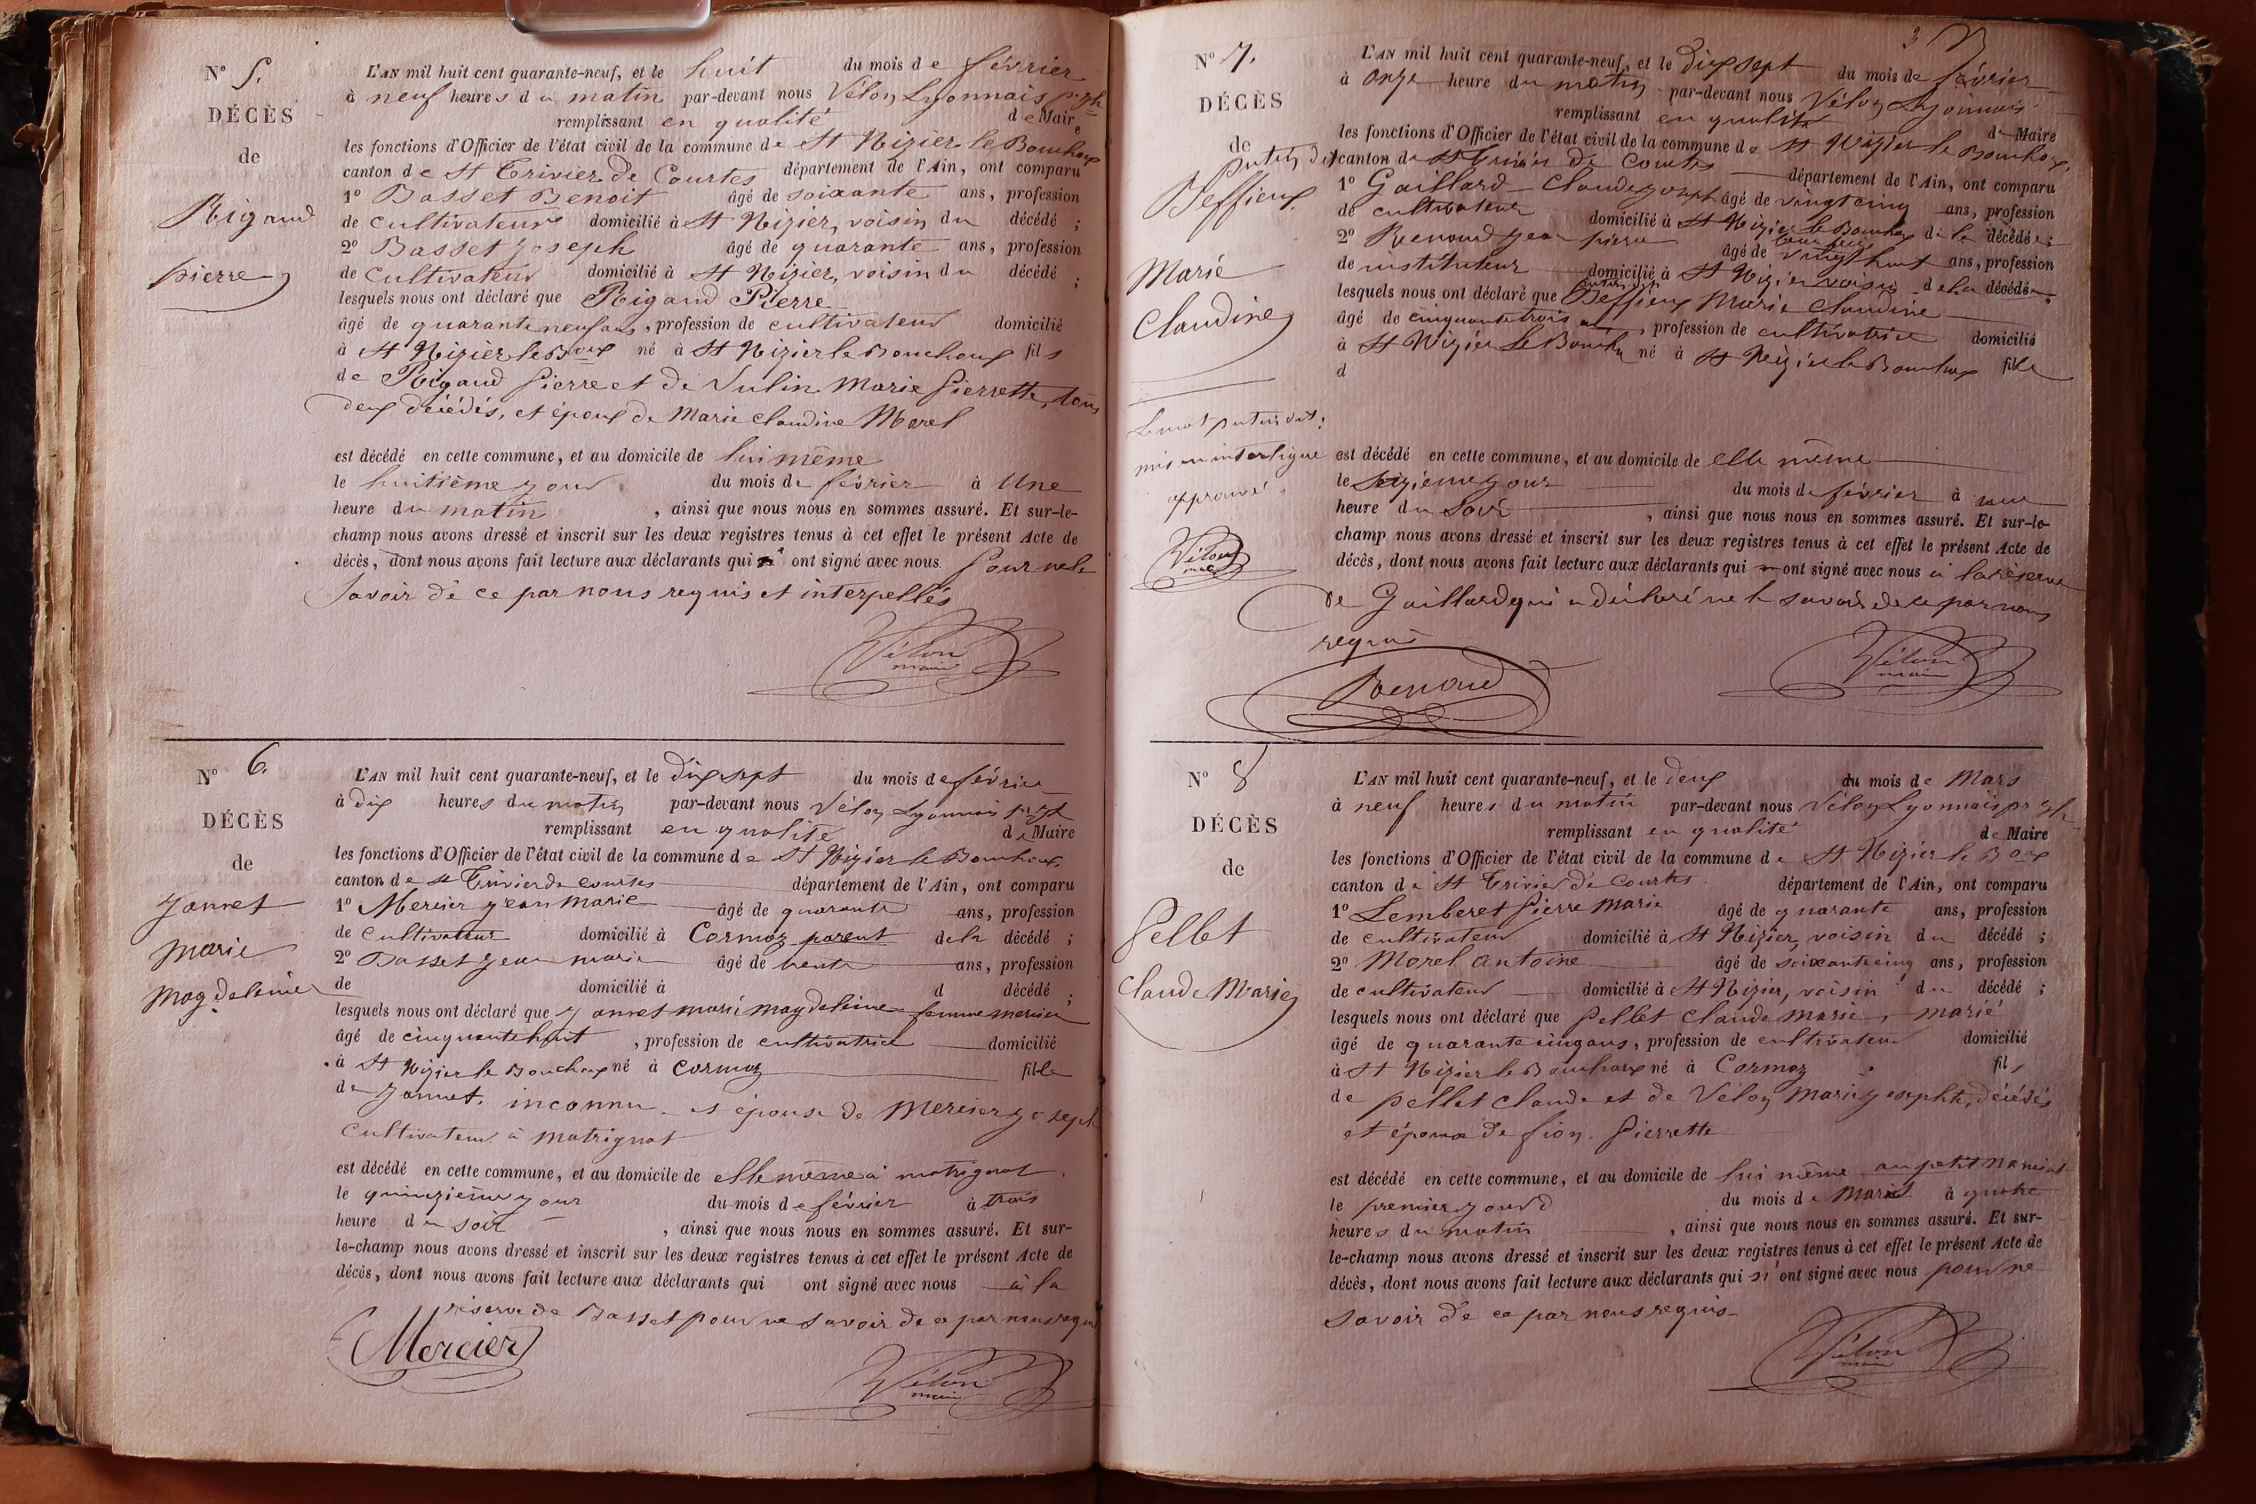 N° 5.
DÉCÈS
de
Rigaud
pierre
L'AN mil huit cent quarante-neuf, et le huit du mois de février
à neuf heures du matin par-devant nous Vélon Lyonnais
remplissant en qualité de Maire
les fonctions d'Officier de l'état civil de la commune de St Nizier le Bouchoux
canton de St Trivier de Courtes département de l'Ain, ont comparu
1° Basset Benoit âgé de soixante ans, profession
de cultivateur domicilié à St Nizier, voisin du décédé ;
2° Basset Joseph âgé de quarante ans, profession
de cultivateur domicilié à St Nizier, voisin du décédé ;
lesquels nous ont déclaré que Rigaud Pierre
âgé de quarante neuf ans, profession de cultivateur domicilié
à St Nizier le Boux né à St Nizier le Bouchoux fils
de Rigaud Pierre et de Vulin Marie Pierrette, tous
deux décédés, et époux de Marie Claudine Morel
est décédé en cette commune, et au domicile de lui même
le huitième jour du mois de février à Une
heure du matin, ainsi que nous nous en sommes assuré. Et sur-le-
champ nous avons dressé et inscrit sur les deux registres tenus à cet effet le présent Acte de
décès, dont nous avons fait lecture aux déclarants qui n' ont signé avec nous Pour ne le
savoir de ce par nous requis et interpellés
Vélon
maire
N° 6.
DÉCÈS
de
Jannet
marie
magdeleine
L'AN mil huit cent quarante-neuf, et le dix sept du mois de février
à dix heures du matin par-devant nous Vélon Lyonnais
remplissant en qualité de Maire
les fonctions d'Officier de l'état civil de la commune de St Nizier le Bouchoux
canton de St Trivier de courtes département de l'Ain, ont comparu
1° Mercier jean marie âgé de quarante ans, profession
de cultivateur domicilié à Cormoz parent de la décédé ;
2° Basset jean marie âgé de trente ans, profession
de domicilié à d décédé ;
lesquels nous ont déclaré que jannet marie magdeleine femme mercier
âgé de cinquante huit, profession de cultivatrice domicilié
à St Nizier le Bouchoux né à Cormoz fille
de Jannet. inconnu et épouse de Mercier joseph
Cultivateur à matrignat
est décédé en cette commune, et au domicile de elle même à matrignat
le quinzième jour du mois de février à trois
heure du soir, ainsi que nous nous en sommes assuré. Et sur-
le-champ nous avons dressé et inscrit sur les deux registres tenus à cet effet le présent Acte de
décès, dont nous avons fait lecture aux déclarants qui ont signé avec nous à la
réserve de Basset pour ne savoir de ce par nous requis
Mercier
Vélon
maire
3
N° 7.
DÉCÈS
de
putin dit
Beffieux
Marie
Claudine
Le mot putin dit
mis en interligne
approuvé
Vélon
maire
L'AN mil huit cent quarante-neuf, et le dix sept du mois de février
à onze heure du matin par-devant nous Vélon Lyonnais
remplissant en qualité de Maire
les fonctions d'Officier de l'état civil de la commune de St Nizier le Bouchoux
canton de St Trivier de Courtes département de l'Ain, ont comparu
1° Gaillard Claude joseph âgé de vingt cinq ans, profession
de cultivateur domicilié à St Nizier le Bouchoux de la décédée ;
2° Renoud jean pierre âgé de vingt huit ans, profession
de instituteur domicilié à St Nizier voisin de la décédée
lesquels nous ont déclaré que putin dit Beffieux Marie Claudine
âgé de cinquante trois ans, profession de cultivatrice domicilié
à St Nizier le Bouchx né à St Nizier le Bouchoux fille
d
est décédé en cette commune, et au domicile de elle même
le seizième jour du mois de février à une
heure du soir, ainsi que nous nous en sommes assuré. Et sur-le-
champ nous avons dressé et inscrit sur les deux registres tenus à cet effet le présent Acte de
décès, dont nous avons fait lecture aux déclarants qui ont signé avec nous à la réserve
de Gaillard qui a déclaré ne le savoir de ce par nous
requis
Renoud
Vélon
maire
N° 8
DÉCÈS
de
Pellet
Claude Marie
L'AN mil huit cent quarante-neuf, et le deux du mois de Mars
à neuf heures du matin par-devant nous Vélon Lyonnais
remplissant en qualité de Maire
les fonctions d'Officier de l'état civil de la commune de St Nizier le Boux
canton de St Trivier de Courtes département de l'Ain, ont comparu
1° Lemberet Pierre Marie âgé de quarante ans, profession
de cultivateur domicilié à St Nizier, voisin du décédé ;
2° Morel Antoine âgé de soixante cinq ans, profession
de cultivateur domicilié à St Nizier, voisin du décédé ;
lesquels nous ont déclaré que Pellet Claude Marie, marié
âgé de quarante cinq ans, profession de cultivateur domicilié
à St Nizier le Bouchoux né à Cormoz fils
de pellet Claude et de Vélon Marie Josephte, décédés
et époux de fion Pierrette
est décédé en cette commune, et au domicile de lui même au petit
le premier jour du mois de Mars à quatre
heures du matin, ainsi que nous nous en sommes assuré. Et sur-
le-champ nous avons dressé et inscrit sur les deux registres tenus à cet effet le présent Acte de
décès, dont nous avons fait lecture aux déclarants qui n'ont signé avec nous pour ne
savoir de ce par nous requis
Vélon
maire